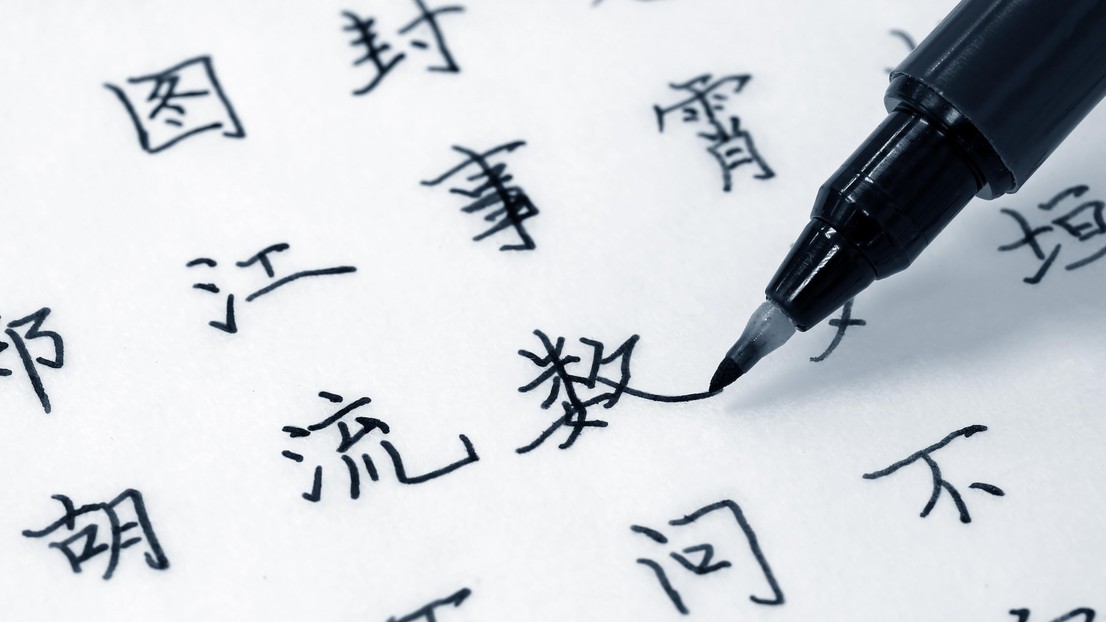 垣
霄不
封事数问
图江流
胡